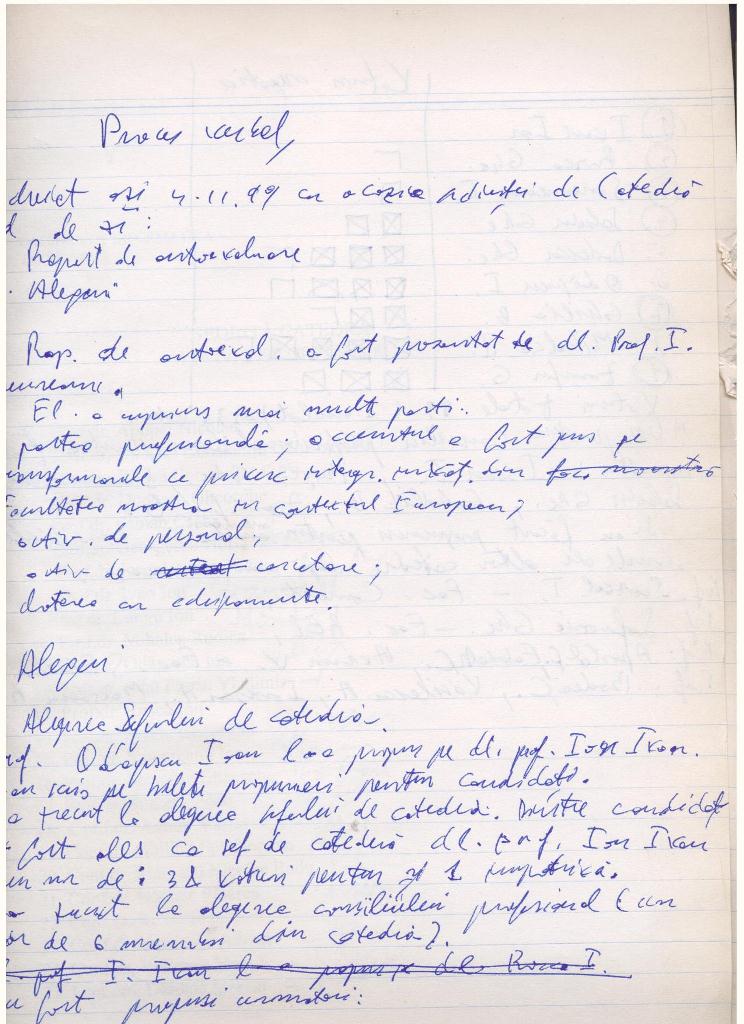 Proces verbal,
azi 4.11.99 cu ocazia ședinței de Catedră
de zi:
Raport de autoevaluare
Alegeri
Rap. de autoeval. a fost prezentat de dl. Prof. I.
El a cuprins mai multe părți:
partea profesională; accentul a fost pus pe
transformările ce privesc integr. învăț. din
facultatea noastră în contextul European;
activ. de personal;
activ de cercetare;
dotarea cu echipamente.
Alegeri
Alegerea Șefului de catedră.
Prof. Odăgescu Ioan l-a propus pe dl. prof. Ion Ivan.
au scris pe bilete propuneri pentru candidați.
a trecut la alegerea șefului de catedră. Dintre candidați
a fost ales ca șef de catedră dl. prof. Ion Ivan
un nr de: 32 voturi pentru și 1 împotrivă.
trecut la alegerea consiliului profesional (un
de 6 membri din catedră).
prof I. Ivan l-a propus pe dl. Roșca I.
au fost propuși următorii: